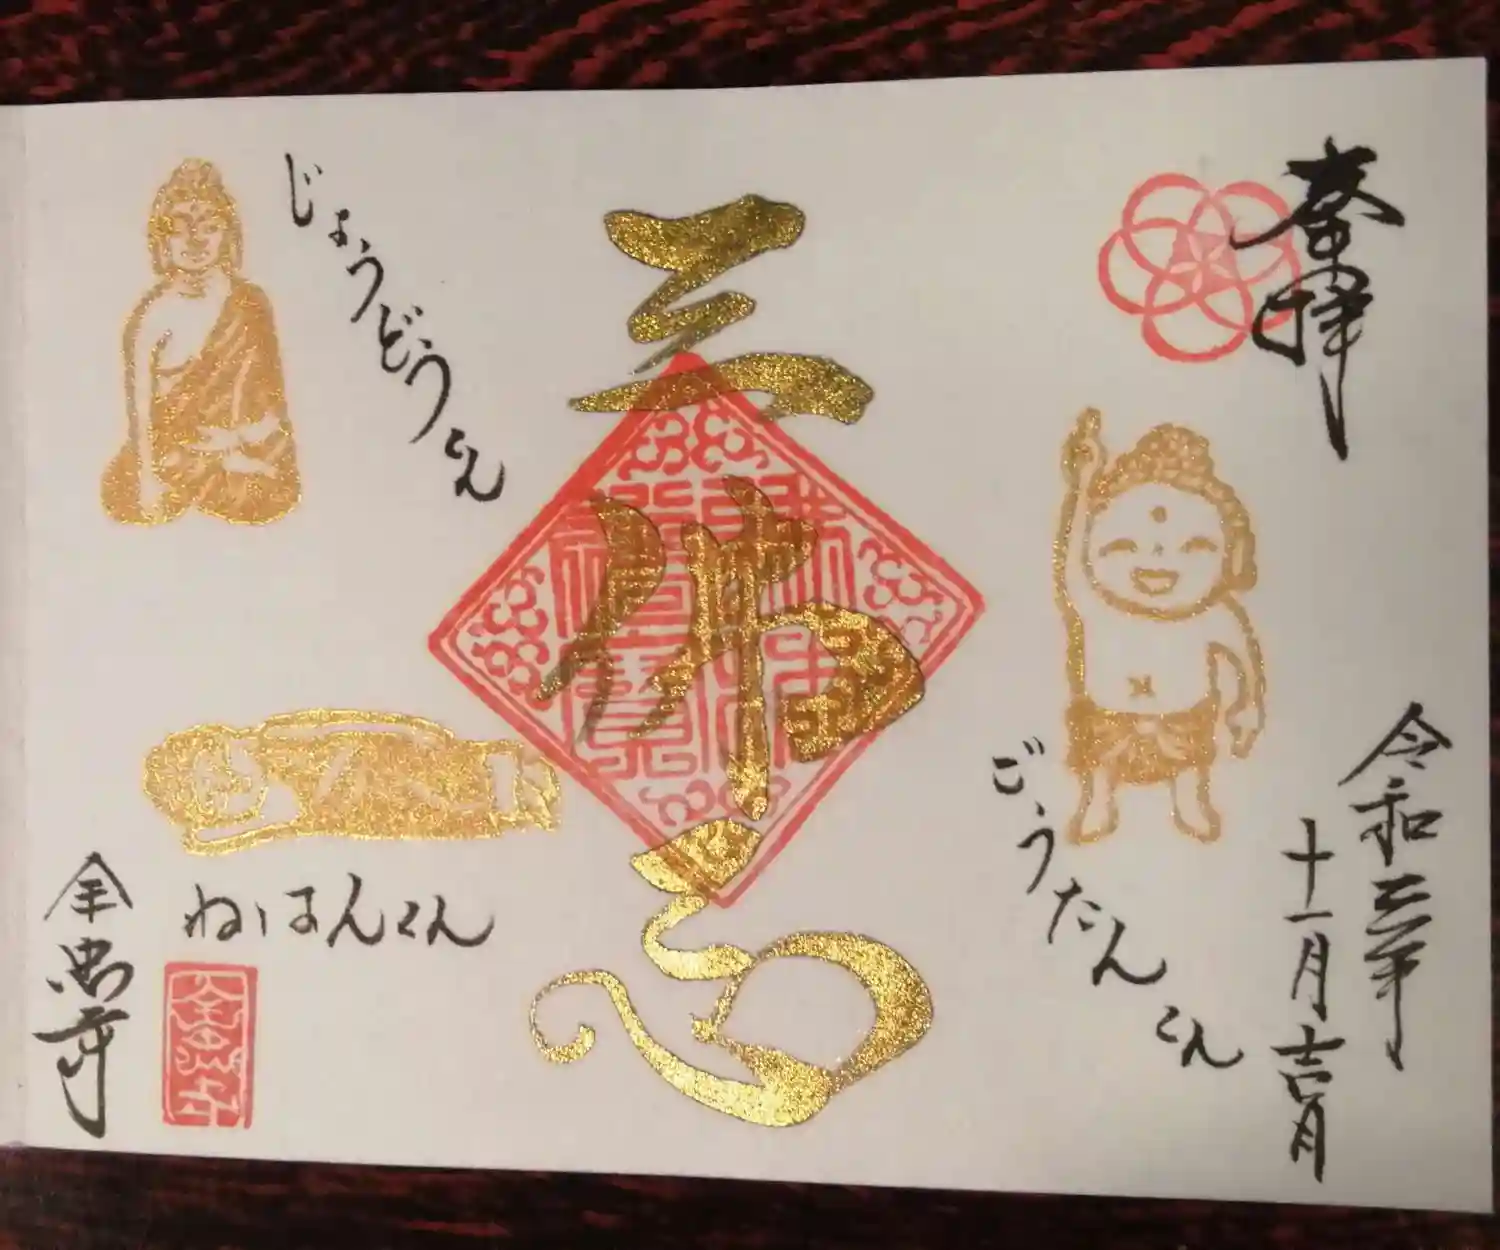 奉拝
令和三年
十一月吉日
ごうたんくん
三佛忌
じょうどうくん
ねはんくん
全忠寺
佛法僧寳
全忠寺